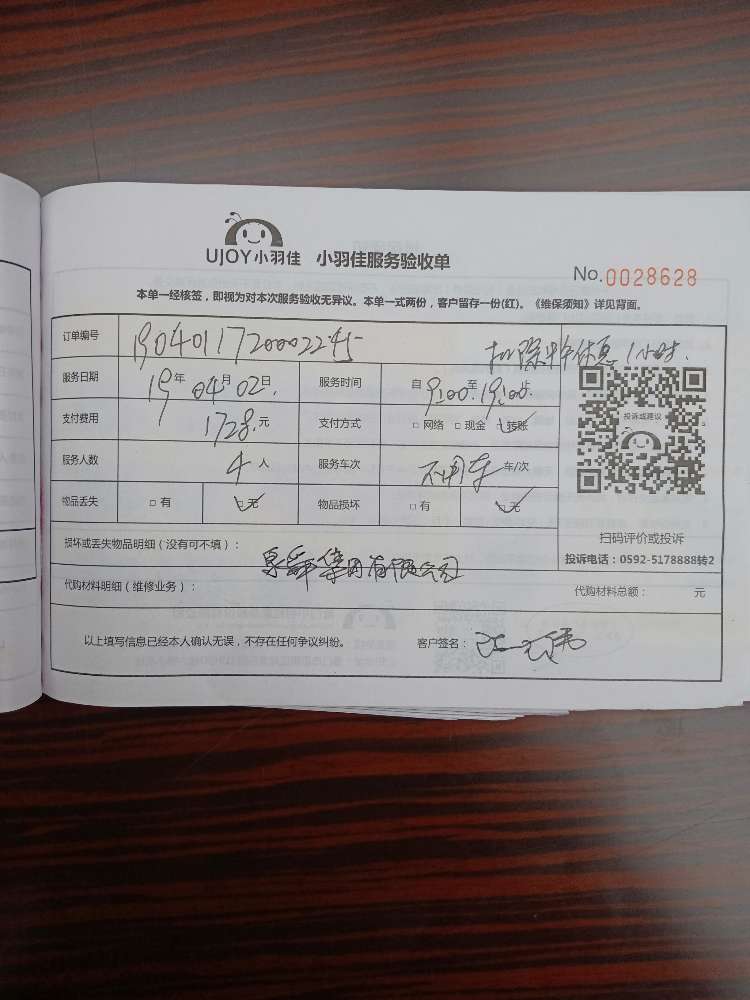 UJOY小羽佳 小羽佳服务验收单
No.0028628
本单一经核签，即视为对本次服务验收无异议。本单一式两份，客户留存一份(红)。《维保须知》详见背面。
订单编号 1904011720002245 扣除午休息1小时.
服务日期 19年04月02日. 服务时间 自9:00至19:00止
支付费用 1728.元 支付方式 □网络 □现金 ☑转账
投诉或建议
服务人数 4人 服务车次 不用车 车/次
物品丢失 □有 ☑无 物品损坏 □有 ☑无
扫码评价或投诉
损坏或丢失物品明细（没有可不填）：
投诉电话：0592-5178888转2
集团有限公司
代购材料明细（维修业务）： 代购材料总额： 元
以上填写信息已经本人确认无误，不存在任何争议纠纷。 客户签名：